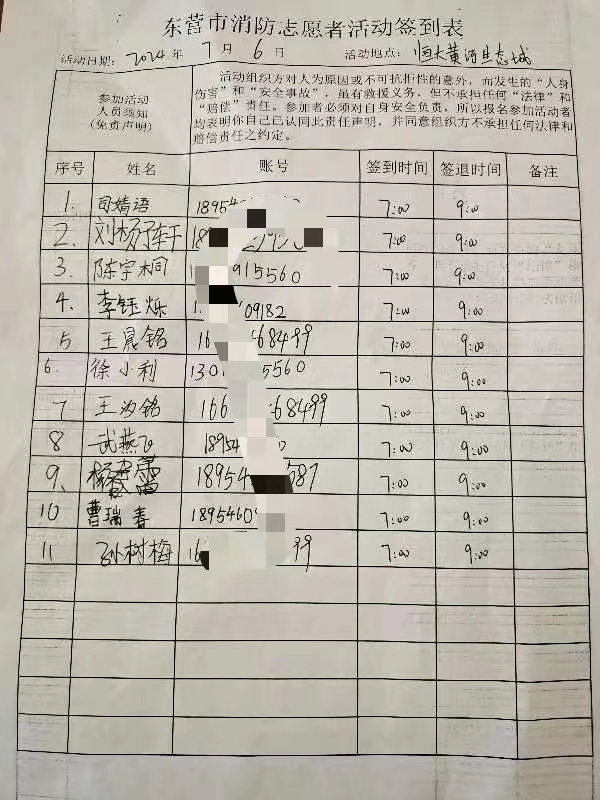 东营市消防志愿者活动签到表
活动日期：2024年7月6日 活动地点：恒大黄河生态城
参加活动
人员须知
（免责声明）
活动组织方对人为原因或不可抗拒性的意外，而发生的“人身
伤害”和“安全事故”，虽有救援义务。但不承担任何“法律”和
“赔偿”责任。参加者必须对自身安全负责，所以报名参加活动者
均表明你自己已认同此责任声明，并同意组织方不承担任何法律和
赔偿责任之约定。
序号 姓名 账号 签到时间 签退时间 备注
1. 司婧语 18954 7:00 9:00
2. 刘杨子轩 7:00 9:00
3. 陈宇桐 915560 7:00 9:00
4. 李钰烁 09182 7:00 9:00
5 王晟铭 16 68499 7:00 9:00
6. 徐小利 1301 5560 7:00 9:00
7 王汐铭 166 68499 7:00 9:00
8 武燕飞 18954 0 7:00 9:00
9、 杨 18954 587 7:00 9:00
10 曹瑞春 1895460 7:00 9:00
11 孙树梅 16 99 7:00 9:00